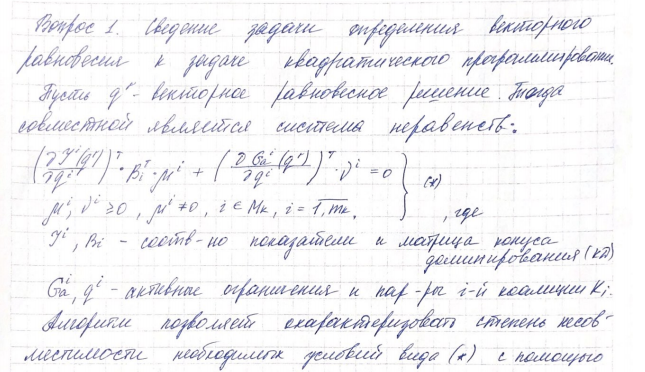 Вопрос 1. Сведение задачи определения векторного
равновесия к задаче квадратического программирования
Пусть qʳ - векторное равновесное решение. Тогда
совместной является система неравенств:
(∂Yⁱ(qʳ)/∂qⁱ)ᵀ · Bᵢᵀ · μⁱ + (∂Gₐⁱ(qʳ)/∂qⁱ)ᵀ · νⁱ = 0
μⁱ, νⁱ ≥ 0, μⁱ ≠ 0, i ∈ Mₖ, i = 1, mₖ. } (*) , где
Yⁱ, Bᵢ - соотв-но показатели и матрица конуса
доминирования (КД)
Gₐⁱ, qⁱ - активные ограничения и пар-ры i-й коалиции Kᵢ.
Алгоритм позволяет охарактеризовать степень несов-
местимости необходимых условий вида (*) с помощью